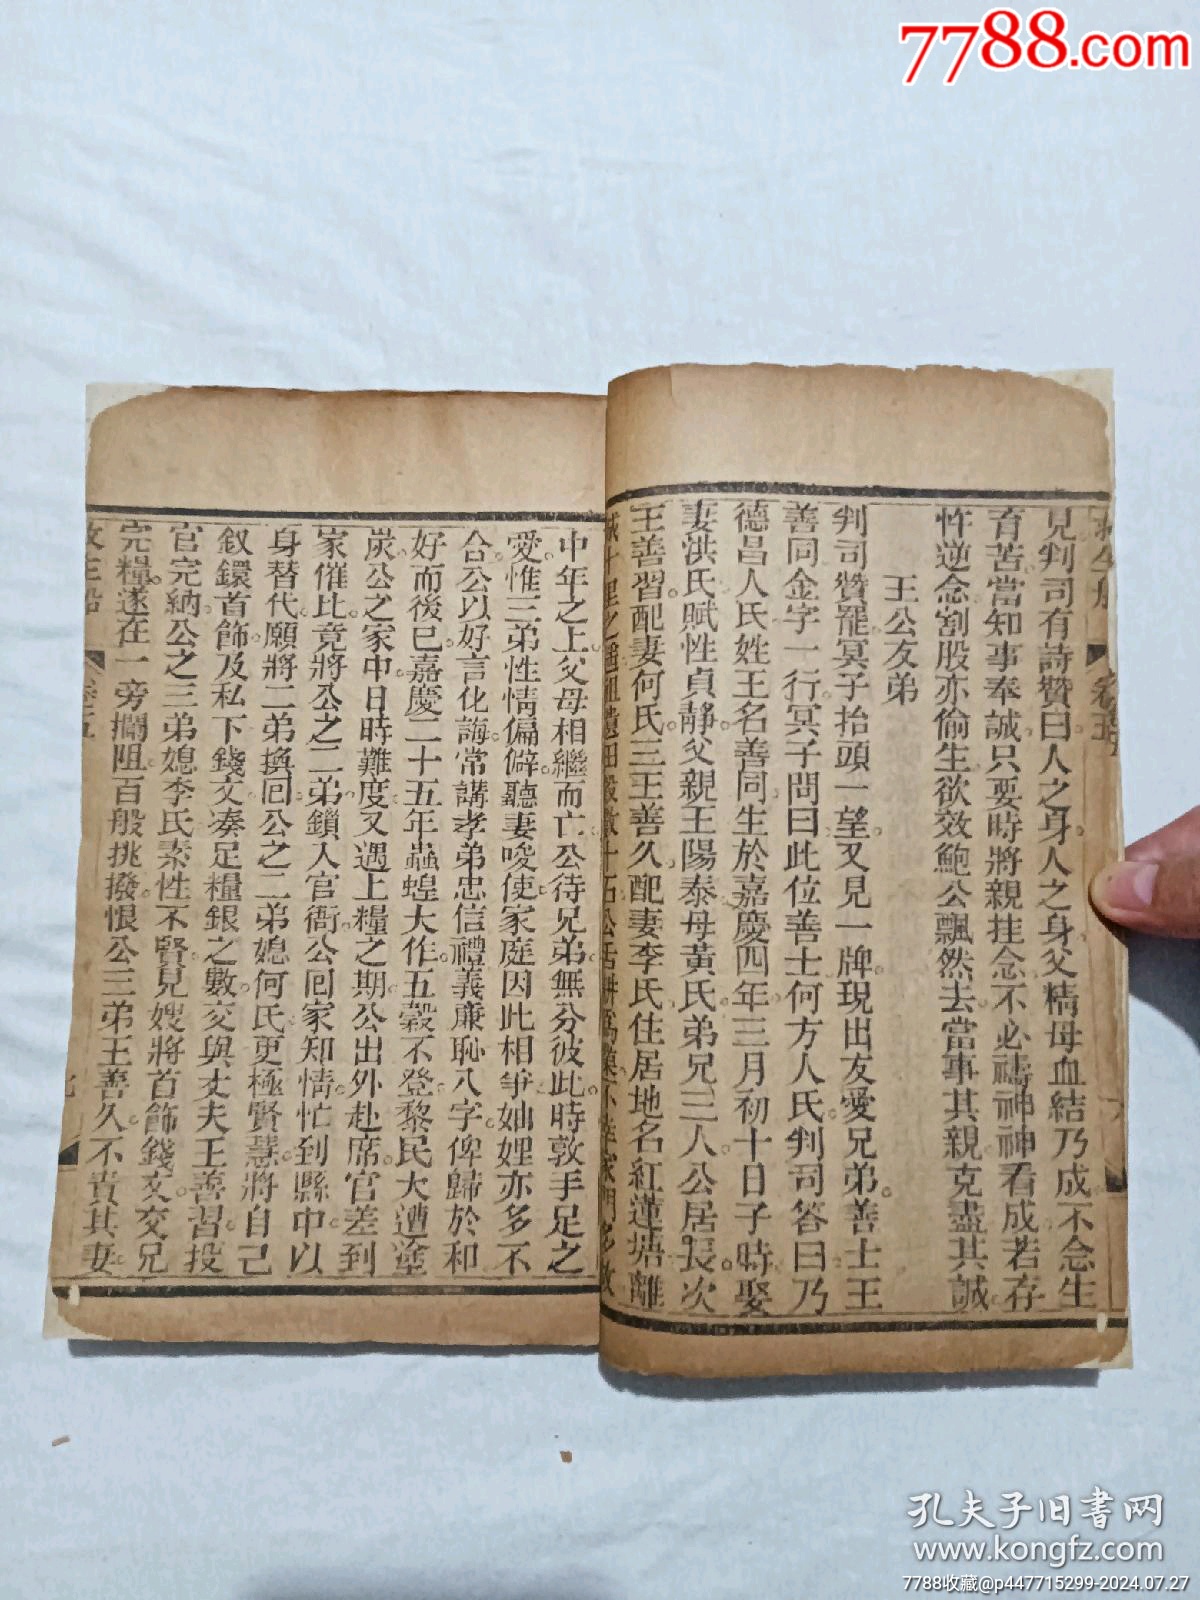 7788.com
見判司有詩贊曰人之身人之身父精母血結乃成不念生
育苦當知事奉誠只要時將親挂念不必禱神神看成若存
忤逆念割股亦偷生欲效鮑公飄然去當事其親克盡其誠
王公友弟
判司贊罷冥子抬頭一望又見一牌現出友愛兄弟善士王
善同金字一行冥子問曰此位善士何方人氏判司答曰乃
德昌人氏姓王名善同生於嘉慶四年三月初十日子時娶
妻洪氏賦性貞靜父親王陽泰母黃氏弟兄三人公居長次
王善習配妻何氏三王善久配妻李氏住居地名紅蓮塘離
城十里之遙祖遺田穀數十石公居耕為業不幸家門多故
中年之上父母相繼而亡公待兄弟無分彼此時敦手足之
愛惟三弟性情偏僻聽妻唆使家庭因此相爭妯娌亦多不
合公以好言化誨常講孝弟忠信禮義廉恥八字俾歸於和
好而後已嘉慶二十五年蟲蝗大作五穀不登黎民大遭塗
炭公之家中日時難度又遇上糧之期公出外赴席官差到
家催比竟將公之二弟鎖入官衙公囘家知情忙到縣中以
身替代願將二弟換囘公之二弟媳何氏更極賢慧將自己
釵鐶首飾及私下錢文凑足糧銀之數交與丈夫王善習投
官完納公之三弟媳李氏素性不賢見嫂將首飾錢文交兄
完糧遂在一旁攔阻百般挑撥恨公三弟王善久不責其妻
救生船
卷之五
七
孔夫子旧书网
www.kongfz.com
7788收藏@p447715299-2024.07.27